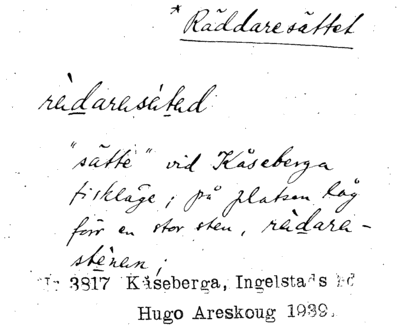 * Räddaresättet
ràdarasätad
"sätte" vid Kåseberga
fiskläge; på platsen låg
förr en stor sten, ràdara-
stènen;
3817 Kåseberga, Ingelstads
Hugo Areskoug 1939.